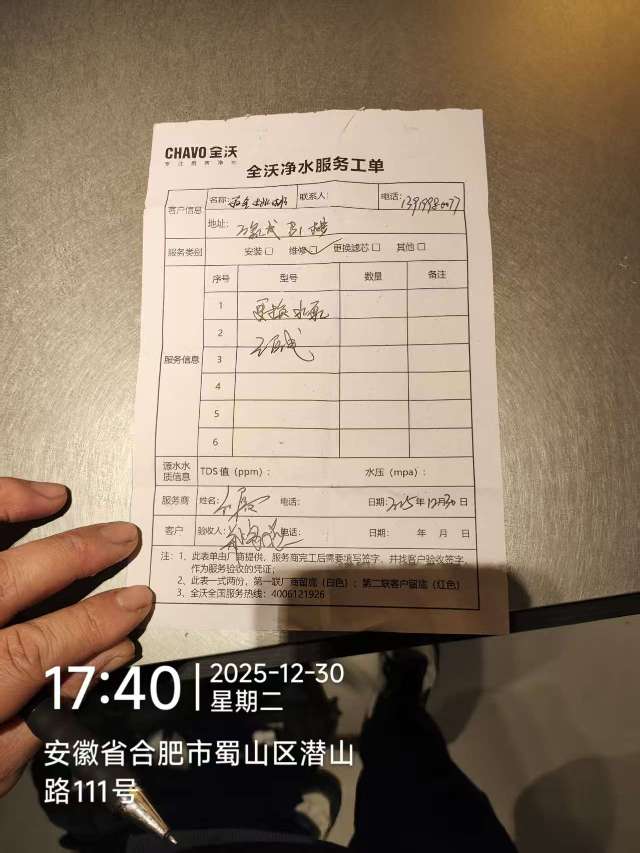 CHAVO 全沃
专注商用净水
全沃净水服务工单
客户信息 名称: 联系人: 电话:
地址:
服务类别 安装□ 维修☑ 更换滤芯□ 其他□
服务信息 序号 型号 数量 备注
1 更换水泵
2
3 已完成
4
5
6 -
源水水质信息 TDS值(ppm): 水压(mpa):
服务商 姓名: 电话: 日期: 2025年12月30日
客户 验收人: 电话: 日期: 年 月 日
注:1、此表单由厂商提供,服务商完工后需要填写签字,并找客户验收签字,
作为服务验收的凭证;
2、此表一式两份,第一联厂商留底(白色);第二联客户留底(红色)
3、全沃全国服务热线:4006121926
17:40 2025-12-30
星期二
安徽省合肥市蜀山区潜山
路111号